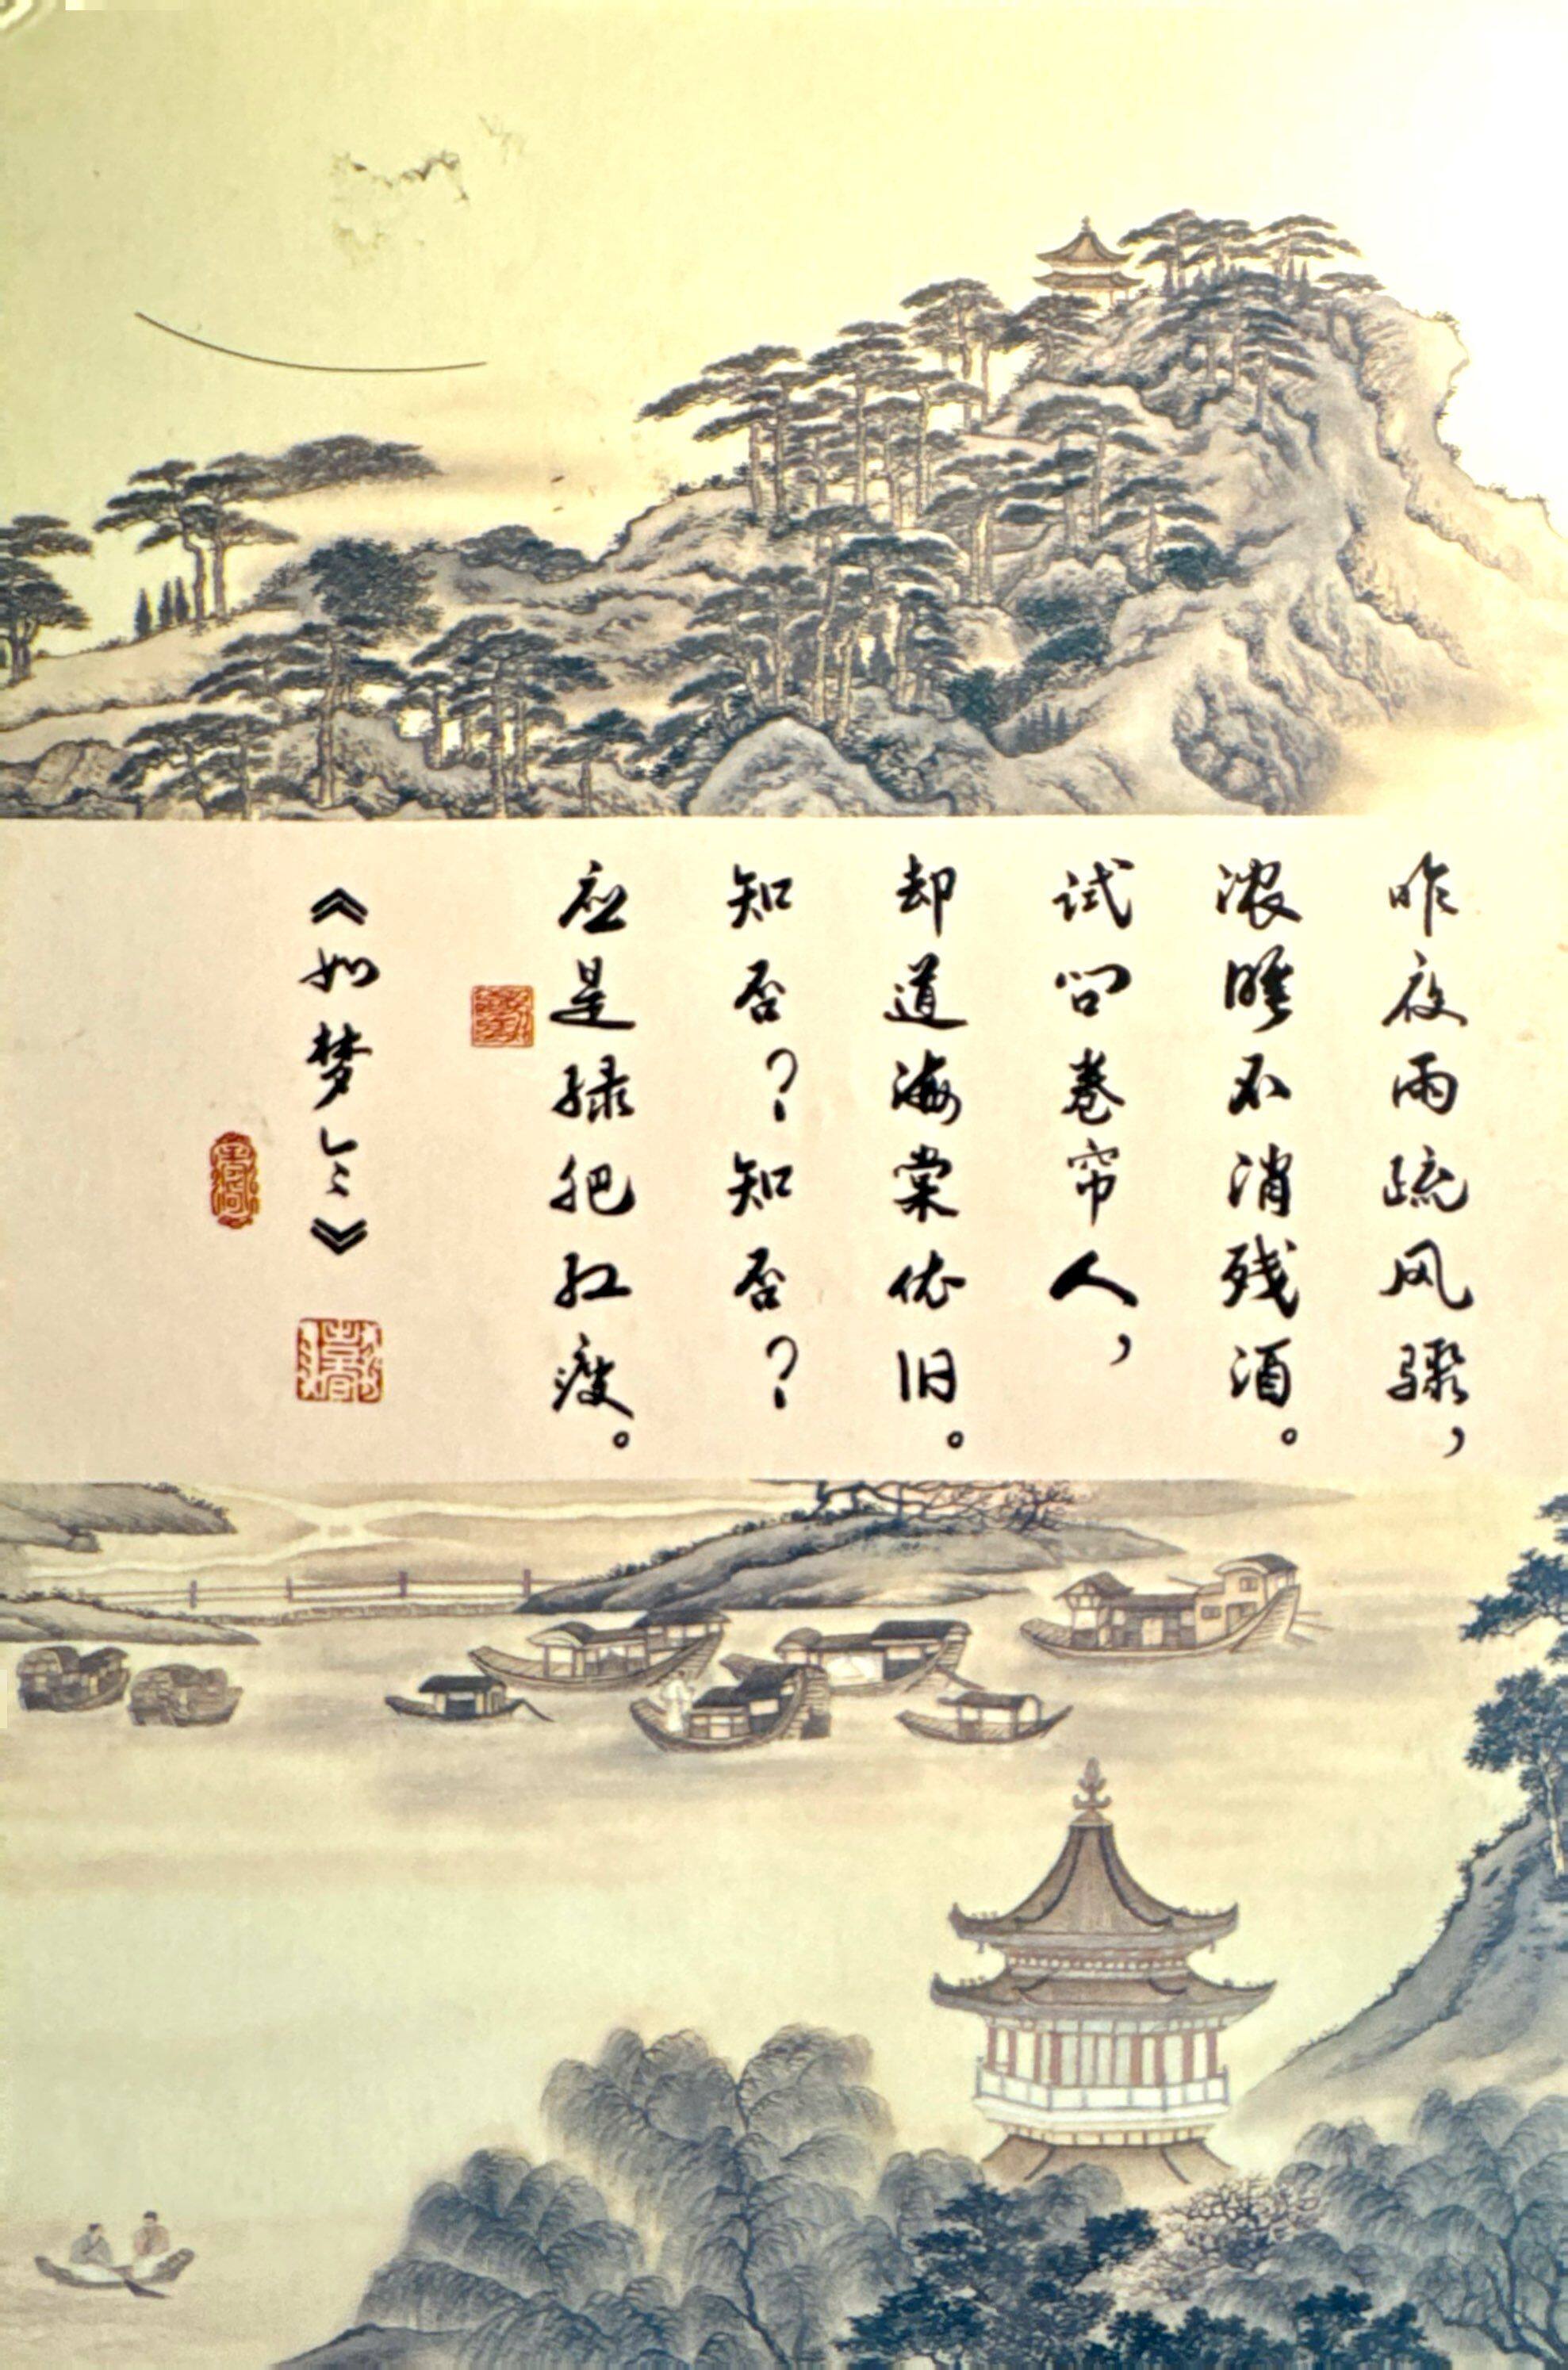 昨夜雨疏风骤，
浓睡不消残酒。
试问卷帘人，
却道海棠依旧。
知否？知否？
应是绿肥红瘦。
《如梦令》